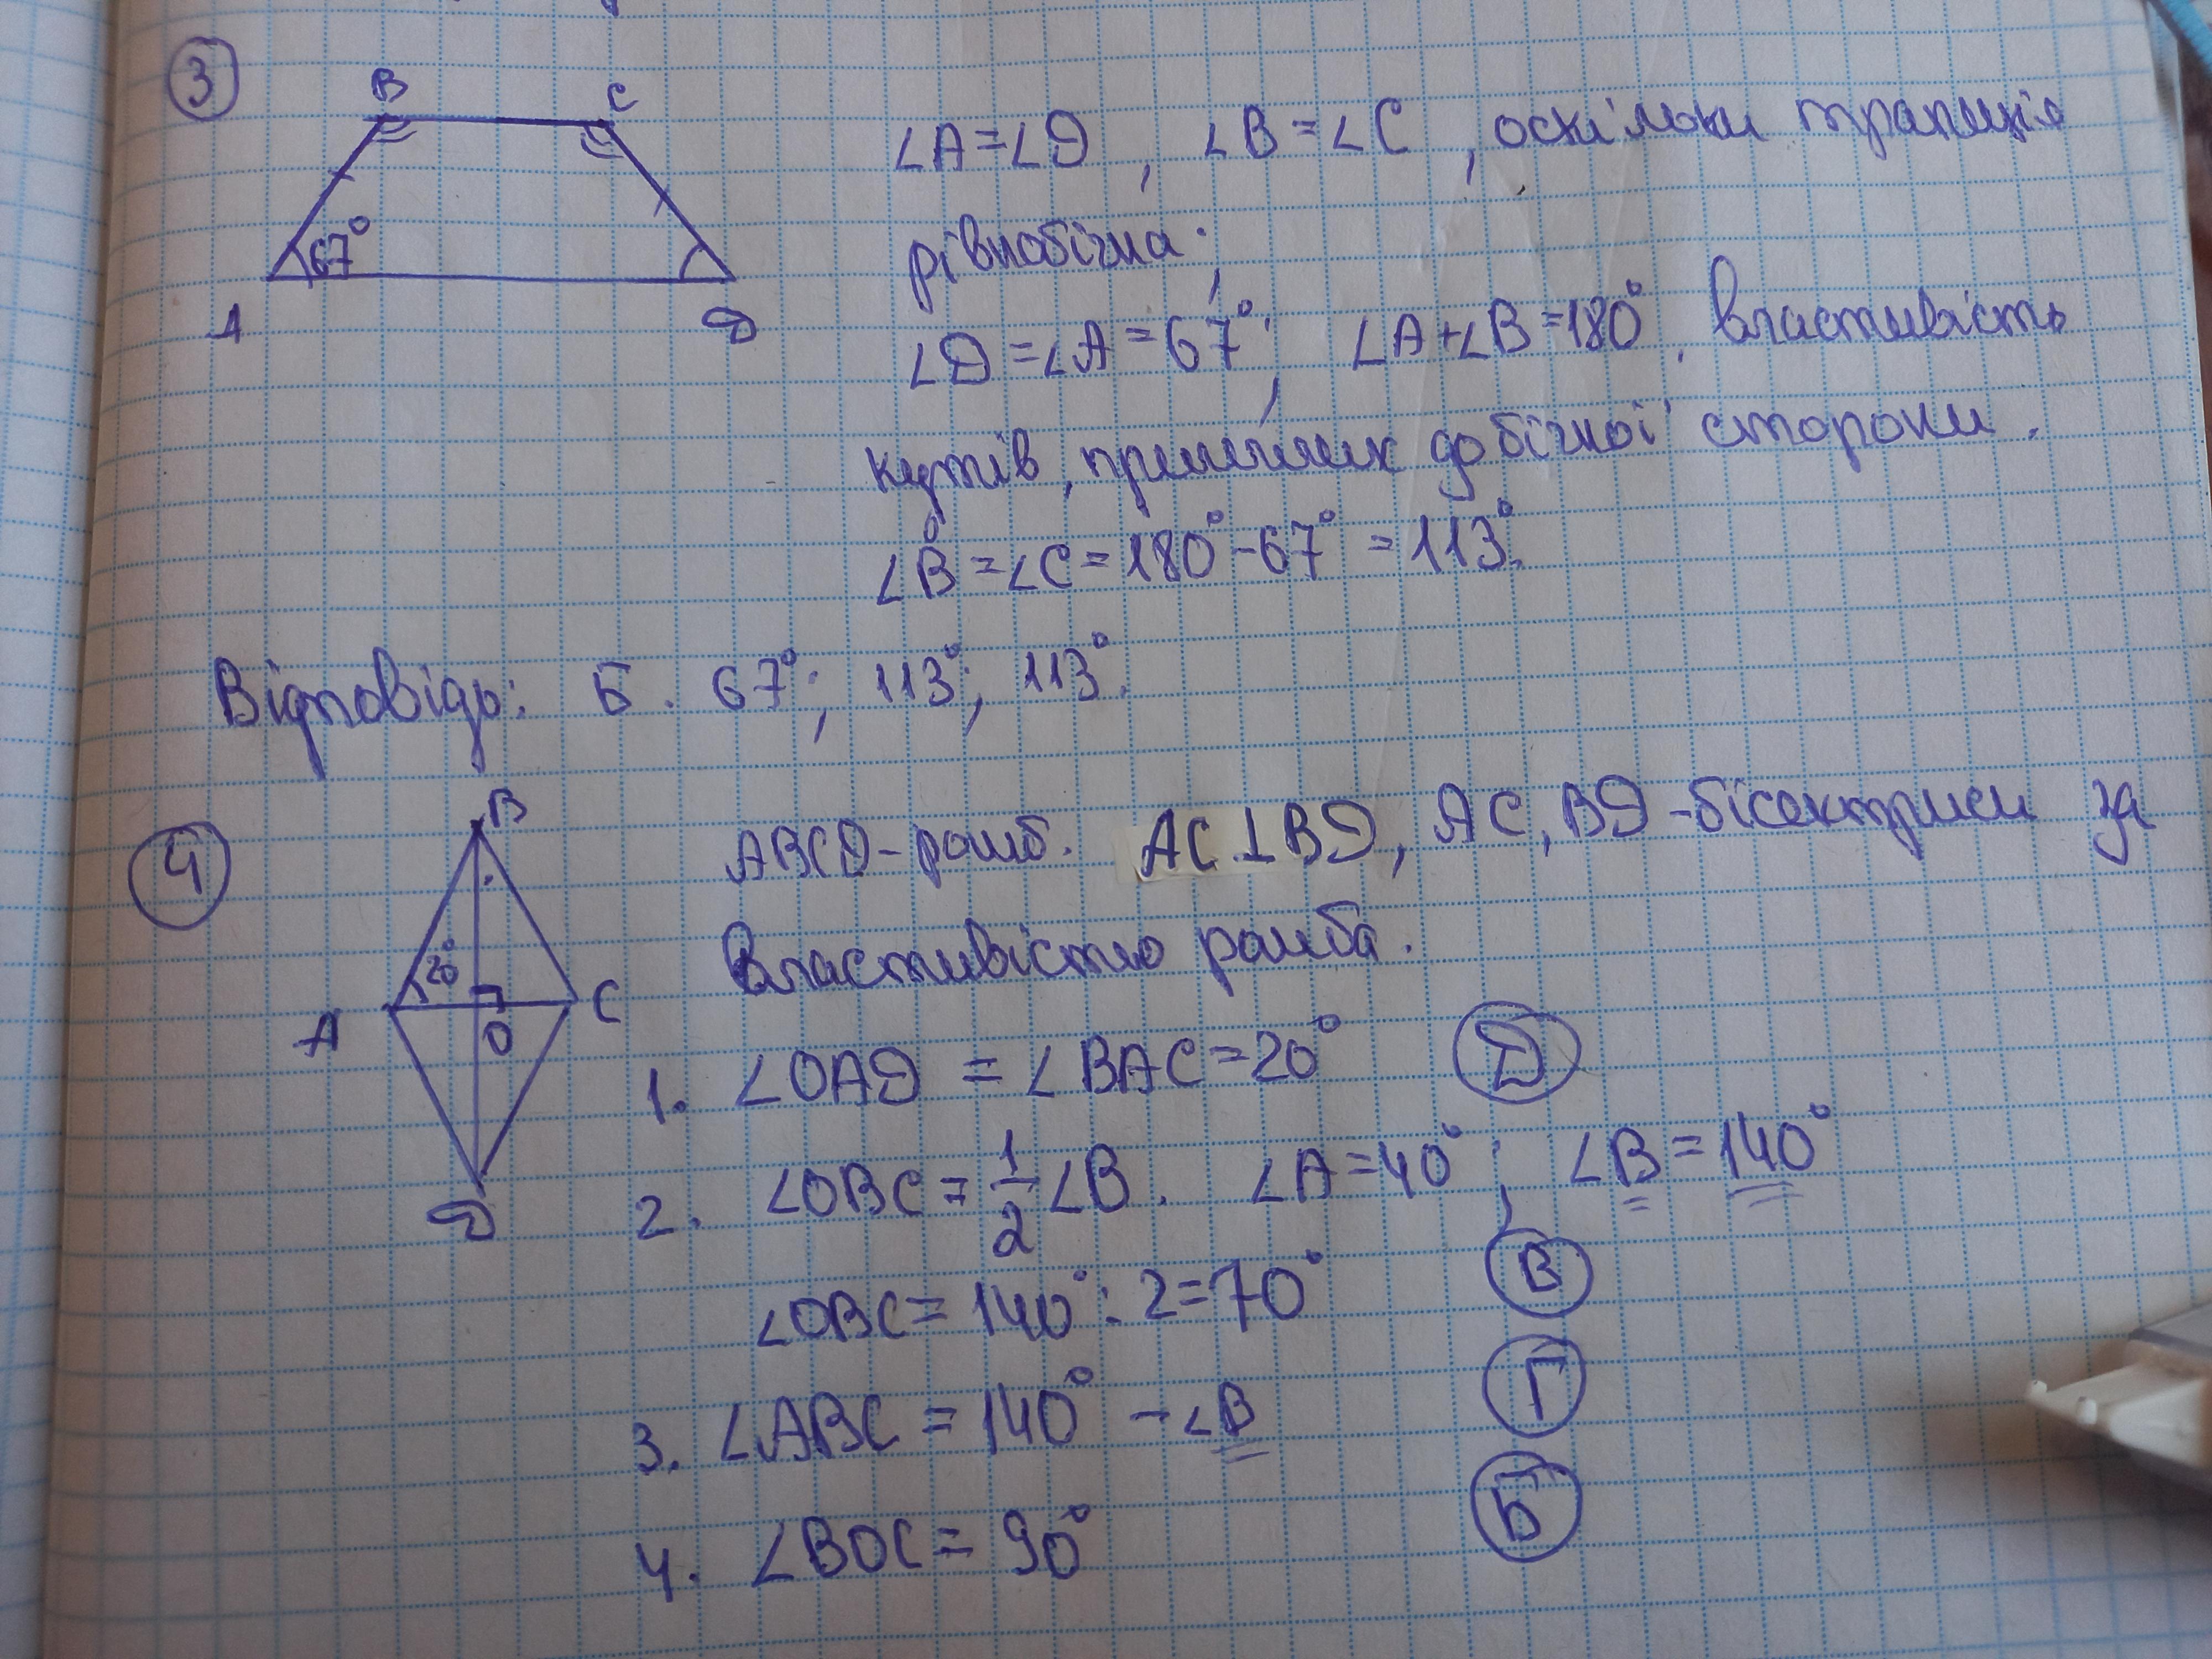 3
B C
67°
A D
∠A=∠D, ∠B=∠C, оскільки трапеція
рівнобічна;
∠D=∠A=67°; ∠A+∠B=180°, властивість
кутів, прилеглих до бічної сторони.
∠B=∠C=180°-67°=113°.
Відповідь: Б. 67°; 113°; 113°.
4
B
20°
A O C
D
ABCD-ромб. AC⊥BD, AC, BD-бісектриси за
властивістю ромба.
1. ∠OAD = ∠BAC=20° Д
2. ∠OBC = 1/2 ∠B. ∠A=40°; ∠B=140°
∠OBC= 140°:2=70° В
3. ∠ABC = 140° -∠B Г
4. ∠BOC= 90° Б